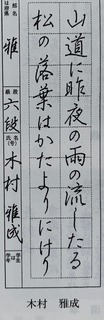 山道に昨夜の雨の流したる
松の落葉はかたよりにけり
雅
六段
木村雅成
木村 雅成